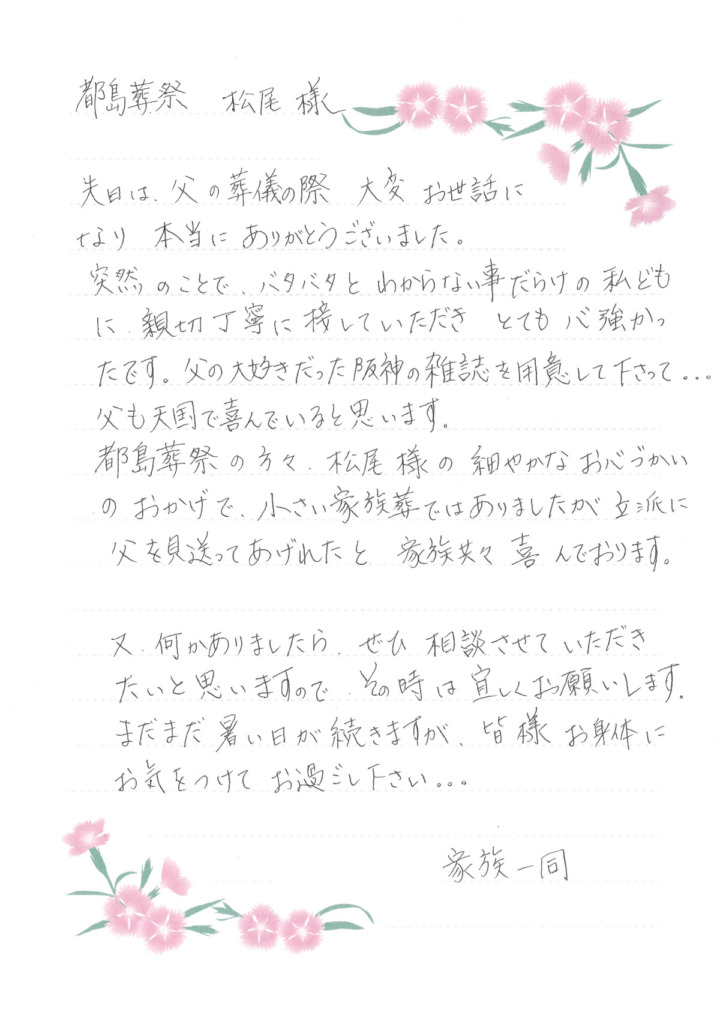 都島葬祭 松尾 様
先日は、父の葬儀の際 大変 お世話に
なり 本当に ありがとうございました。
突然 のことで、バタバタと わからない事だらけの 私ども
に 親切丁寧に 接していただき とても 心強かっ
たです。父の大好きだった 阪神の雑誌を用意して下さって...
父も天国で喜んでいると思います。
都島葬祭 の 方々、松尾 様 の 細やかな お心づかい
の おかげで、小さい家族葬ではありましたが 立派に
父を見送ってあげれたと 家族共々 喜 んでおります。
又、何かありましたら、ぜひ 相談させて いただき
たいと思いますので、その時 は 宜しくお願いします。
まだまだ 暑い日が 続きますが、皆様 お身体に
お気をつけて お過ごし下さい...
家族一同